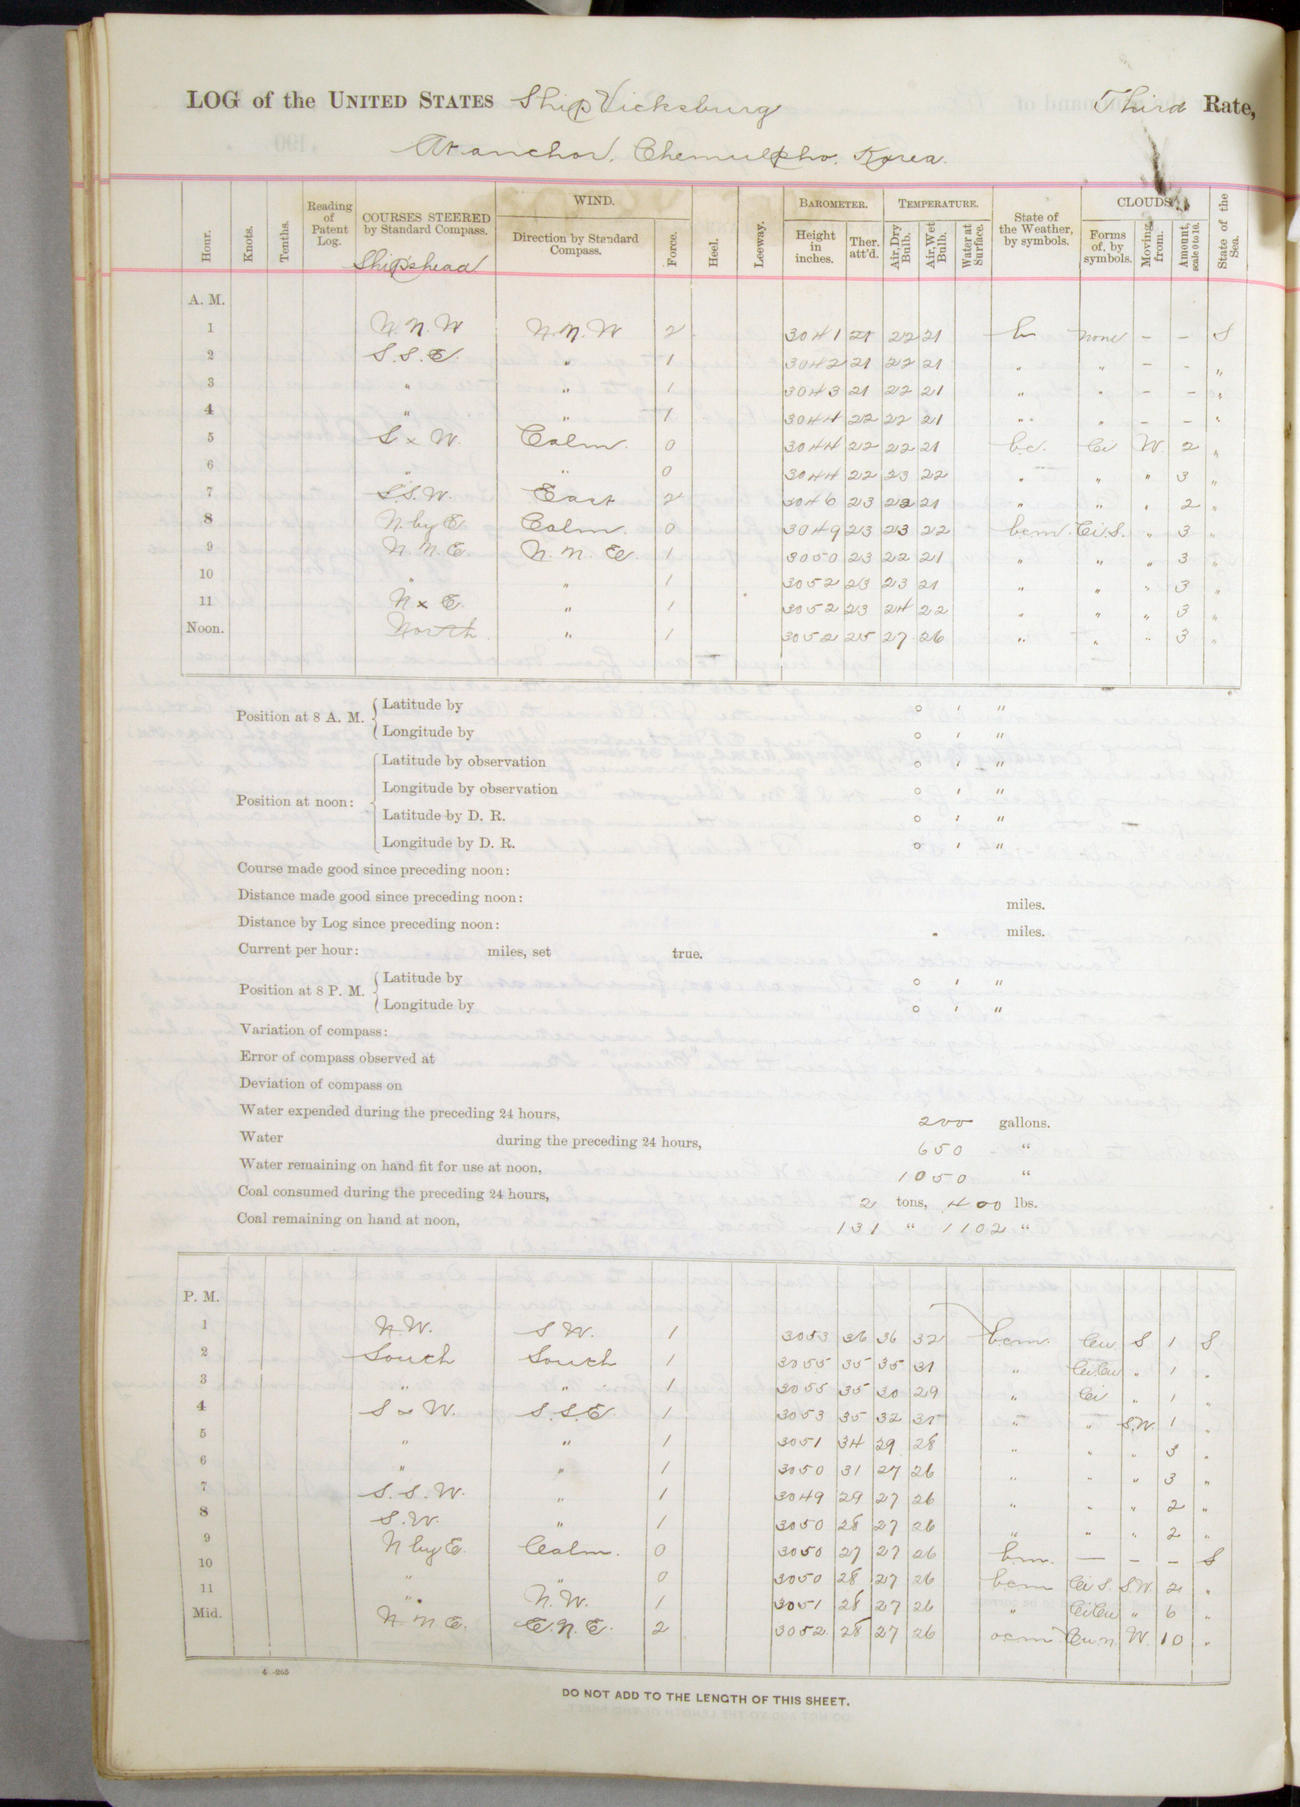 LOG of the UNITED STATES Ship Vicksburg Third Rate,
At anchor. Chemulpho. Korea.
Hour. Knots. Tenths. Reading of Patent Log. COURSES STEERED by Standard Compass. WIND. Direction by Standard Compass. Force. Heel. Leeway. BAROMETER. Height in inches. Ther. att'd. TEMPERATURE. Air, Dry Bulb. Air, Wet Bulb. Water at Surface. State of the Weather, by symbols. CLOUDS. Forms of, by symbols. Moving from. Amount, scale 0 to 10. State of the Sea.
Ship's head
A. M.
1 N.N.W N.N.W 2 3041 21 22 21 b none - - S
2 S.S.E. " 1 3042 21 22 21 " " - - "
3 " " 1 3043 21 22 21 " " - - "
4 " " 1 3044 22 22 21 " " - - "
5 S x W. Calm. 0 3044 22 22 21 bc. Ci W. 2 "
6 " " 0 3044 22 23 22 " " " 3 "
7 S.S.W. East 2 3046 23 22 21 " " " 2 "
8 N. by E. Calm. 0 3049 23 23 22 bcm. Ci.S. " 3 "
9 N.N.E. N.N.E. 1 3050 23 22 21 " " " 3 "
10 " " 1 3052 23 23 21 " " " 3 "
11 N x E. " 1 3052 23 24 22 " " " 3 "
Noon. North. " 1 3052 25 27 26 " " " 3 "
Position at 8 A. M. Latitude by ° ' "
Longitude by ° ' "
Position at noon: Latitude by observation ° ' "
Longitude by observation ° ' "
Latitude by D. R. ° ' "
Longitude by D. R. ° ' "
Course made good since preceding noon:
Distance made good since preceding noon: miles.
Distance by Log since preceding noon: miles.
Current per hour: miles, set true.
Position at 8 P. M. Latitude by ° ' "
Longitude by ° ' "
Variation of compass:
Error of compass observed at
Deviation of compass on
Water expended during the preceding 24 hours, 200 gallons.
Water during the preceding 24 hours, 650 "
Water remaining on hand fit for use at noon, 1050 "
Coal consumed during the preceding 24 hours, 2 tons, 400 lbs.
Coal remaining on hand at noon, 131 " 1102 "
P. M.
1 N.W. S.W. 1 3053 36 36 32 bcm. Cu. S 1 S
2 South South 1 3055 35 35 31 " Ci.Cu " 1 "
3 " " 1 3055 35 30 29 " Ci " 1 "
4 S x W. S.S.E. 1 3053 35 32 31 " " S.W. 1 "
5 " " 1 3051 34 29 28 " " " 3 "
6 " " 1 3050 31 27 26 " " " 3 "
7 S.S.W. " 1 3049 29 27 26 " " " 2 "
8 S.W. " 1 3050 28 27 26 " " " 2 "
9 N by E. Calm. 0 3050 27 27 26 bm. — - - S
10 " " 0 3050 28 27 26 bcm Ci S. S.W. 2 "
11 " N.W. 1 3051 28 27 26 " Ci Cu " 6 "
Mid. N.N.E. E.N.E. 2 3052 28 27 26 ocm. Cu.n. W. 10 "
4—265
DO NOT ADD TO THE LENGTH OF THIS SHEET.